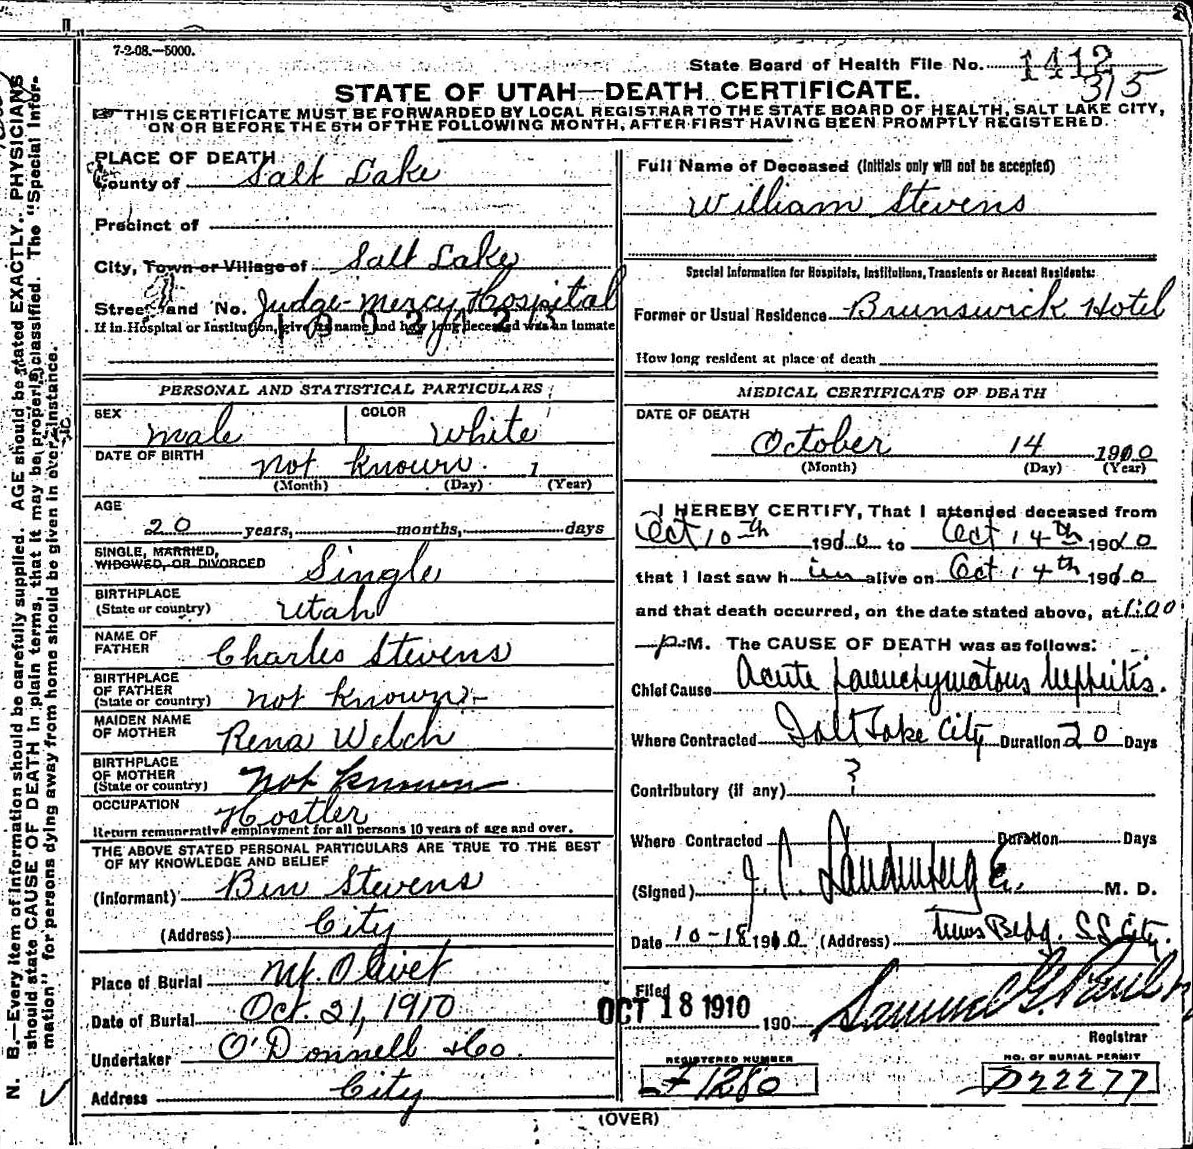 7-2-08.—5000.
State Board of Health File No. 1412
315
STATE OF UTAH—DEATH CERTIFICATE.
THIS CERTIFICATE MUST BE FORWARDED BY LOCAL REGISTRAR TO THE STATE BOARD OF HEALTH, SALT LAKE CITY,
ON OR BEFORE THE 5TH OF THE FOLLOWING MONTH, AFTER FIRST HAVING BEEN PROMPTLY REGISTERED.
PLACE OF DEATH
County of Salt Lake
Precinct of
City, Town or Village of Salt Lake
Street and No. Judge Mercy Hospital
If in Hospital or Institution, give its name and how long deceased was an inmate
PERSONAL AND STATISTICAL PARTICULARS
SEX male COLOR White
DATE OF BIRTH not known. 1
(Month) (Day) (Year)
AGE
20 years, months, days
SINGLE, MARRIED,
WIDOWED, OR DIVORCED Single
BIRTHPLACE
(State or country) Utah
NAME OF
FATHER Charles Stevens
BIRTHPLACE
OF FATHER
(State or country) not known
MAIDEN NAME
OF MOTHER Rena Welch
BIRTHPLACE
OF MOTHER
(State or country) not known
OCCUPATION Hostler
Return remunerative employment for all persons 10 years of age and over.
THE ABOVE STATED PERSONAL PARTICULARS ARE TRUE TO THE BEST
OF MY KNOWLEDGE AND BELIEF
(Informant) Ben Stevens
(Address) City
Place of Burial Mt. Olivet
Date of Burial Oct. 21, 1910
Undertaker O'Donnell & Co.
Address City
Full Name of Deceased (Initials only will not be accepted)
William Stevens
Special Information for Hospitals, Institutions, Transients or Recent Residents:
Former or Usual Residence Brunswick Hotel
How long resident at place of death
MEDICAL CERTIFICATE OF DEATH
DATE OF DEATH
October 14 1910
(Month) (Day) (Year)
I HEREBY CERTIFY, That I attended deceased from
Oct 10th 1910 to Oct 14th 1910
that I last saw him alive on Oct 14th 1910
and that death occurred, on the date stated above, at 1:00
P M. The CAUSE OF DEATH was as follows:
Chief Cause Acute parenchymatous Nephritis.
Where Contracted Salt Lake City Duration 20 Days
Contributory (if any) ?
Where Contracted Duration Days
(Signed) J. C. M. D.
Date 10-18 1910 (Address) News Bldg. S L City.
Filed OCT 18 1910 190 Samuel G. Paul
Registrar
REGISTERED NUMBER
F1280
NO. OF BURIAL PERMIT
D22277
(OVER)
N. B.—Every item of information should be carefully supplied. AGE should be stated EXACTLY. PHYSICIANS
should state CAUSE OF DEATH in plain terms, that it may be properly classified. The "Special Infor-
mation" for persons dying away from home should be given in every instance.